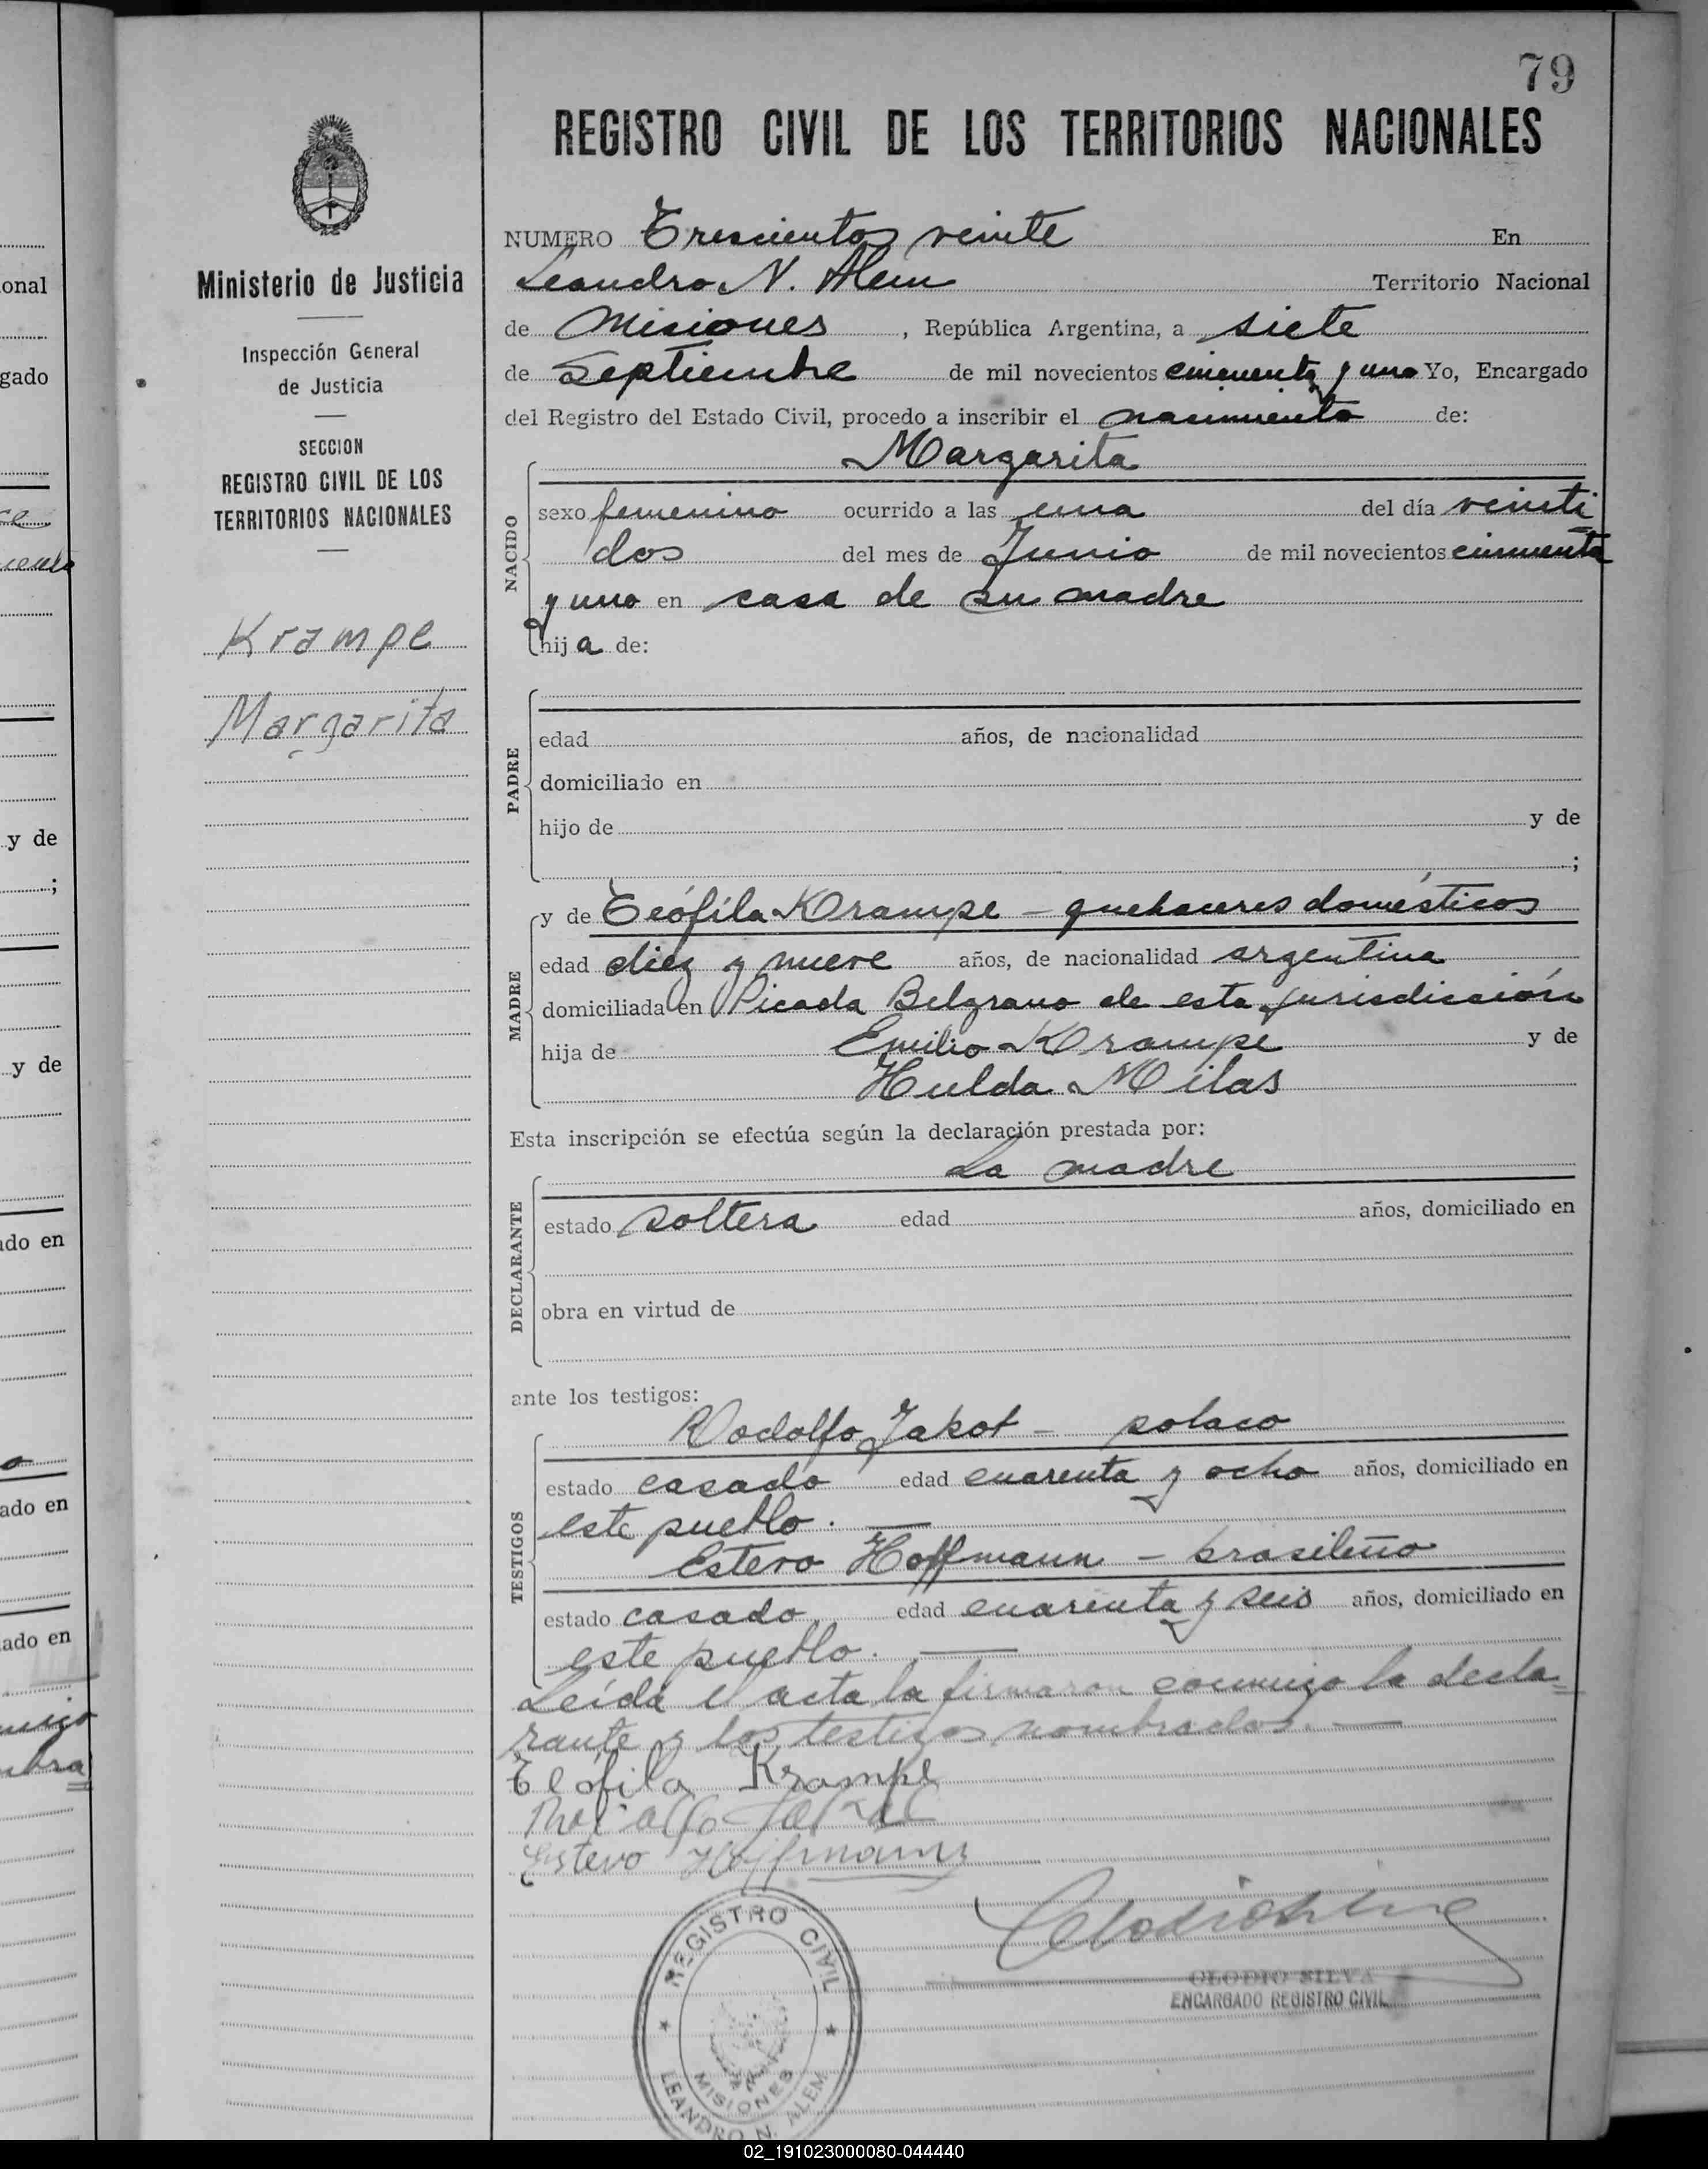 79
REGISTRO CIVIL DE LOS TERRITORIOS NACIONALES
Ministerio de Justicia
Inspección General
de Justicia
SECCION
REGISTRO CIVIL DE LOS
TERRITORIOS NACIONALES
Krampe
Margarita
NUMERO Trescientos veinte En
Leandro N. Alem Territorio Nacional
de Misiones, República Argentina, a siete
de Septiembre de mil novecientos cincuenta y uno Yo, Encargado
del Registro del Estado Civil, procedo a inscribir el nacimiento de:
Margarita
NACIDO
sexo femenino ocurrido a las una del día veinti
dos del mes de Junio de mil novecientos cincuenta
y uno en casa de su madre
hij a de:
PADRE
edad años, de nacionalidad
domiciliado en
hijo de y de
;
MADRE
y de Teófila Krampe - quehaceres domésticos
edad diez y nueve años, de nacionalidad argentina
domiciliada en Picada Belgrano de esta jurisdicción
hija de Emilio Krampe y de
Hulda Milas
Esta inscripción se efectúa según la declaración prestada por:
La madre
DECLARANTE
estado soltera edad años, domiciliado en
obra en virtud de
ante los testigos:
TESTIGOS
Rodolfo Jakot - polaco
estado casado edad cuarenta y ocho años, domiciliado en
este pueblo. —
Estevo Hoffmann - brasileño
estado casado edad cuarenta y seis años, domiciliado en
este pueblo. —
Leída el acta la firmaron conmigo la decla=
rante y los testigos nombrados. —
Teófila Krampe
Estevo Hoffmann
REGISTRO CIVIL
MISIONES
LEANDRO N. ALEM
CLODIO SILVA
ENCARGADO REGISTRO CIVIL
onal
gado
y de
;
y de
ado en
ado en
ado en
02_191023000080-044440